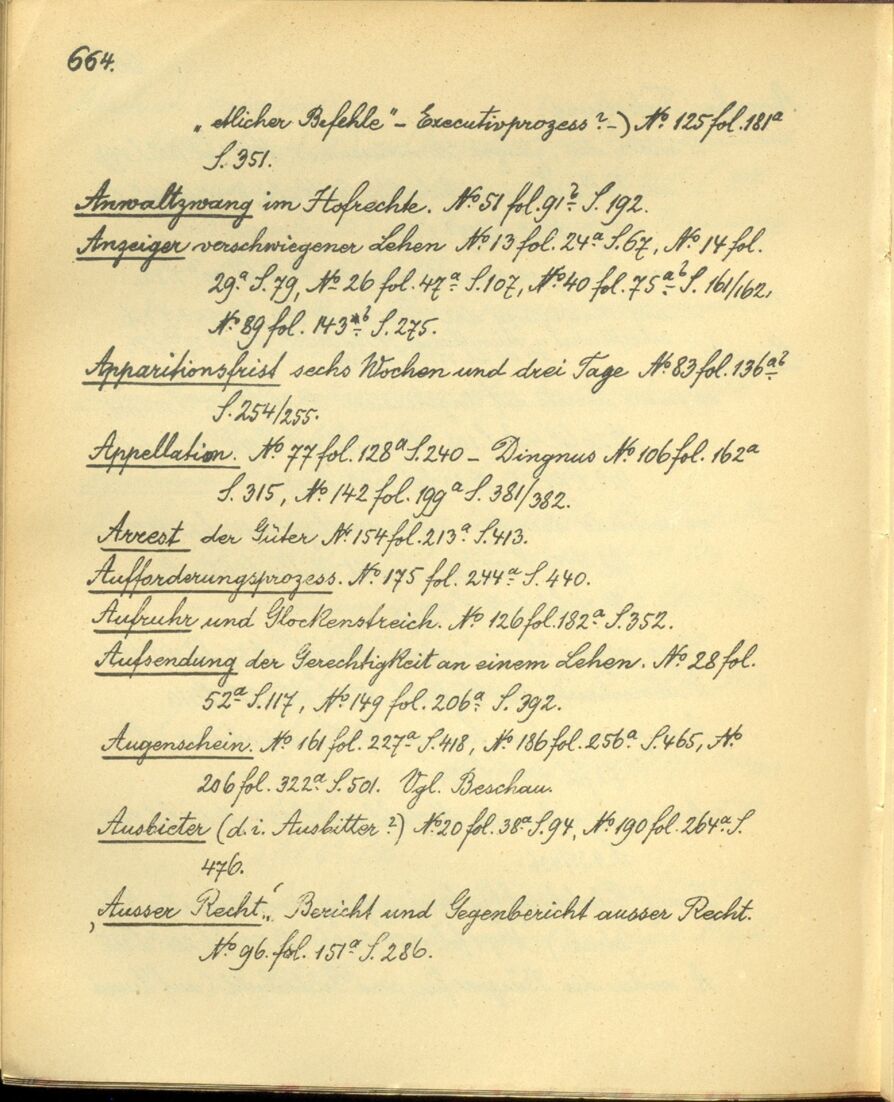 664.
„etlicher Befehle" - Executivprozess ? -) No 125 fol. 181a
S. 351.
Anwaltzwang im Hofrechte. No 51 fol. 91b S. 192.
Anzeiger verschwiegener Lehen No 13 fol. 24a S. 67, No 14 fol.
29a S. 79, No 26 fol. 47a S. 107, No 40 fol. 75ab S. 161/162,
No 89 fol. 143b S. 275.
Apparitionsfrist sechs Wochen und drei Tage No 83 fol. 136ab
S. 254/255.
Appellation. No 77 fol. 128a S. 240 - Dingnus No 106 fol. 162a
S. 315, No 142 fol. 199a S. 381/382.
Arrest der Güter No 154 fol. 213a S. 413.
Aufforderungsprozess. No 175 fol. 244a S. 440.
Aufruhr und Glockenstreich. No 126 fol. 182a S. 352.
Aufsendung der Gerechtigkeit an einem Lehen. No 28 fol.
52a S. 117, No 149 fol. 206a S. 392.
Augenschein. No 161 fol. 227a S. 418, No 186 fol. 256a S. 465, No
206 fol. 322a S. 501. Vgl. Beschau.
Ausbieter (d. i. Ausbitter ?) No 20 fol. 38a S. 94, No 190 fol. 264a S.
476.
‚Ausser Recht‘. Bericht und Gegenbericht ausser Recht.
No 96. fol. 151a S. 286.